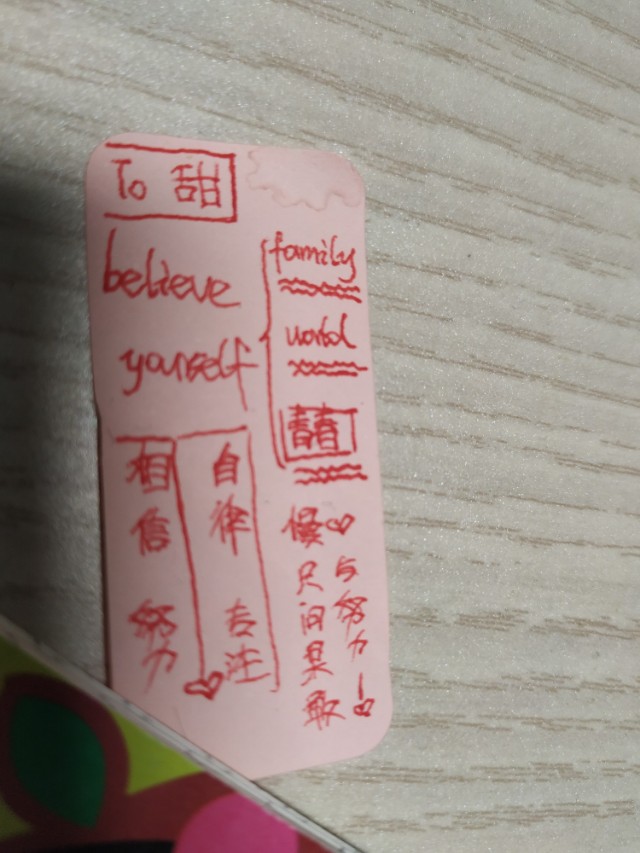 To 甜
believe
yourself
family
world
青春
相信 努力
自律 专注
只问果敢
与努力!